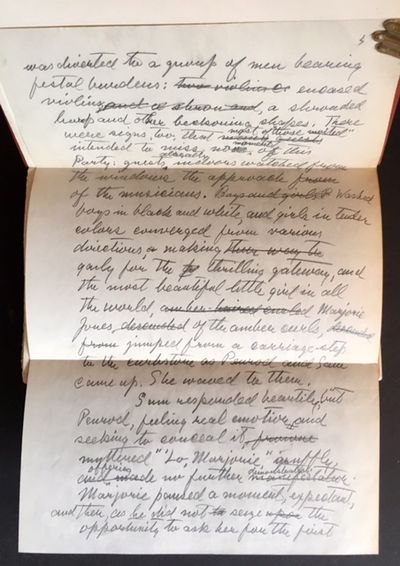 5
was diverted to a group of men bearing
festal burdens: two violins encased
violins and a shroud, a shrouded
harp and other beckoning shapes. There
were signs, too, that most of those "invited"
intended to miss no moment of this
Party: guests
the windows the approach from
of the musicians. Boys and girls Washed
boys in black and white, and girls in tender
colors converged from various
directions, making
gayly for the thrilling gateway, and
the most beautiful little girl in all
the world, amber-haired Marjorie
Jones, of the amber curls,
from jumped from a carriage-step
to the curbstone as Penrod and Sam
came up. She waved to them.
Sam responded heartily, but
Penrod, feeling real emotion, and
seeking to conceal it,
muttered "Lo, Marjorie"
and made offering no further demonstration.
Marjorie paused a moment, expectant,
and then, as he did not seize upon the
opportunity to ask her for the first